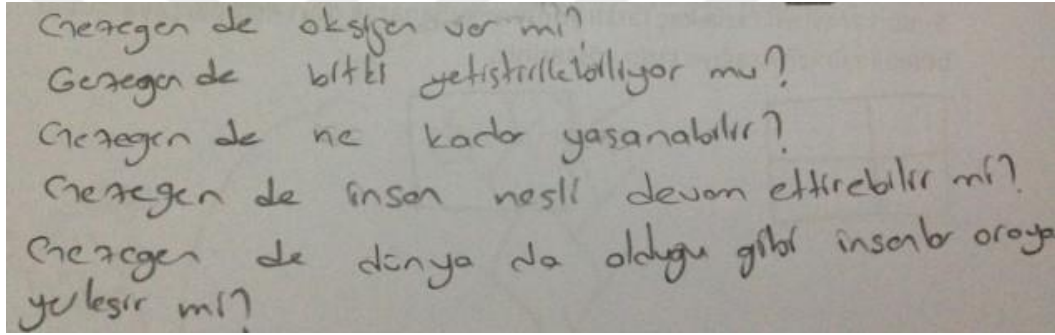 Gezegen de oksijen var mı?
Gezegen de bitki yetiştirilebiliyor mu?
Gezegen de ne kadar yaşanabilir?
Gezegen de insan nesli devam ettirebilir mi?
Gezegen de dünya da olduğu gibi insanlar oraya
yerleşir mi?